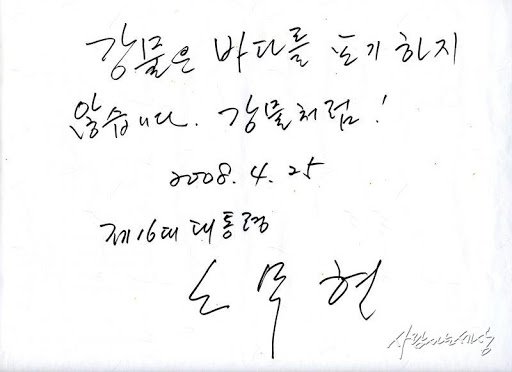 강물은 바다를 포기하지
않습니다. 강물처럼!
2008. 4. 25
제16대 대통령
노무현
사람사는세상